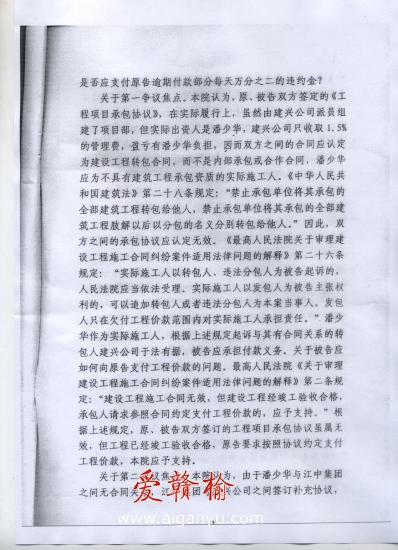 是否应支付原告逾期付款部分每天万分之二的违约金？
关于第一争议焦点。本院认为，原、被告双方签定的《工
程项目承包协议》，在实际履行上，虽然由建兴公司派员组
建了项目部，但实际出资人是潘少华，建兴公司只收取 1.5%
的管理费，盈亏有潘少华负担，因而双方之间的合同应认定
为建设工程转包合同，而不是内部承包或合作合同，潘少华
应为不具有建筑工程承包资质的实际施工人。《中华人民共
和国建筑法》第二十八条规定：“禁止承包单位将其承包的
全部建筑工程转包给他人，禁止承包单位将其承包的全部建
筑工程肢解以后以分包的名义分别转包给他人。”因此，双
方之间的承包协议应认定无效。《最高人民法院关于审理建
设工程施工合同纠纷案件适用法律问题的解释》第二十六条
规定：“实际施工人以转包人、违法分包人为被告起诉的，
人民法院应当依法受理。实际施工人以发包人为被告主张权
利的，可以追加转包人或者违法分包人为本案当事人。发包
人只在欠付工程价款范围内对实际施工人承担责任。”潘少
华作为实际施工人，根据上述规定起诉与其有合同关系的转
包人建兴公司于法有据，被告应承担付款义务。关于被告应
如何向原告支付工程价款的问题。最高人民法院《关于审理
建设工程施工合同纠纷案件适用法律问题的解释》第二条规
定：“建设工程施工合同无效，但建设工程经竣工验收合格，
承包人请求参照合同约定支付工程价款的，应予支持。”根
据上述规定，原、被告双方签订的工程项目承包协议虽属无
效，但工程已经竣工验收合格，原告要求按照协议约定支付
工程价款，本院应予支持。
关于第二争议焦点。本院认为，由于潘少华与江中集团
之间无合同关系，江中集团与建兴公司之间签订补充协议，
爱赣榆
www.aiganyu.com